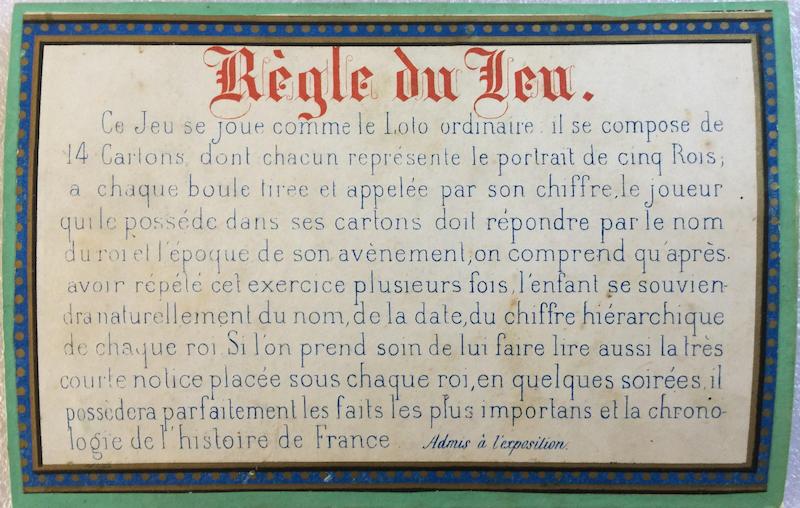 Règle du Jeu.
Ce Jeu se joue comme le Loto ordinaire: il se compose de
14 Cartons, dont chacun représente le portrait de cinq Rois;
a chaque boule tirée et appelée par son chiffre, le joueur
qui le posséde dans ses cartons doit répondre par le nom
du roi et l'époque de son avènement; on comprend qu'après
avoir répété cet exercice plusieurs fois, l'enfant se souvien-
dra naturellement du nom, de la date, du chiffre hiérarchique
de chaque roi. Si l'on prend soin de lui faire lire aussi la très
courte notice placée sous chaque roi, en quelques soirées, il
possèdera parfaitement les faits les plus importans et la chrono-
logie de l'histoire de France. Admis à l'exposition.